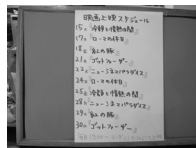 映画上映スケジュール
15日 冷静と情熱の間
17日 ローマの休日
18日 紅の豚
21日 ゴッドファーザー
22日 ニューシネマパラダイス
24日 ローマの休日
25日 冷静と情熱の間
28日 ニューシネマパラダイス
29日 紅の豚
30日 ゴッドファーザー